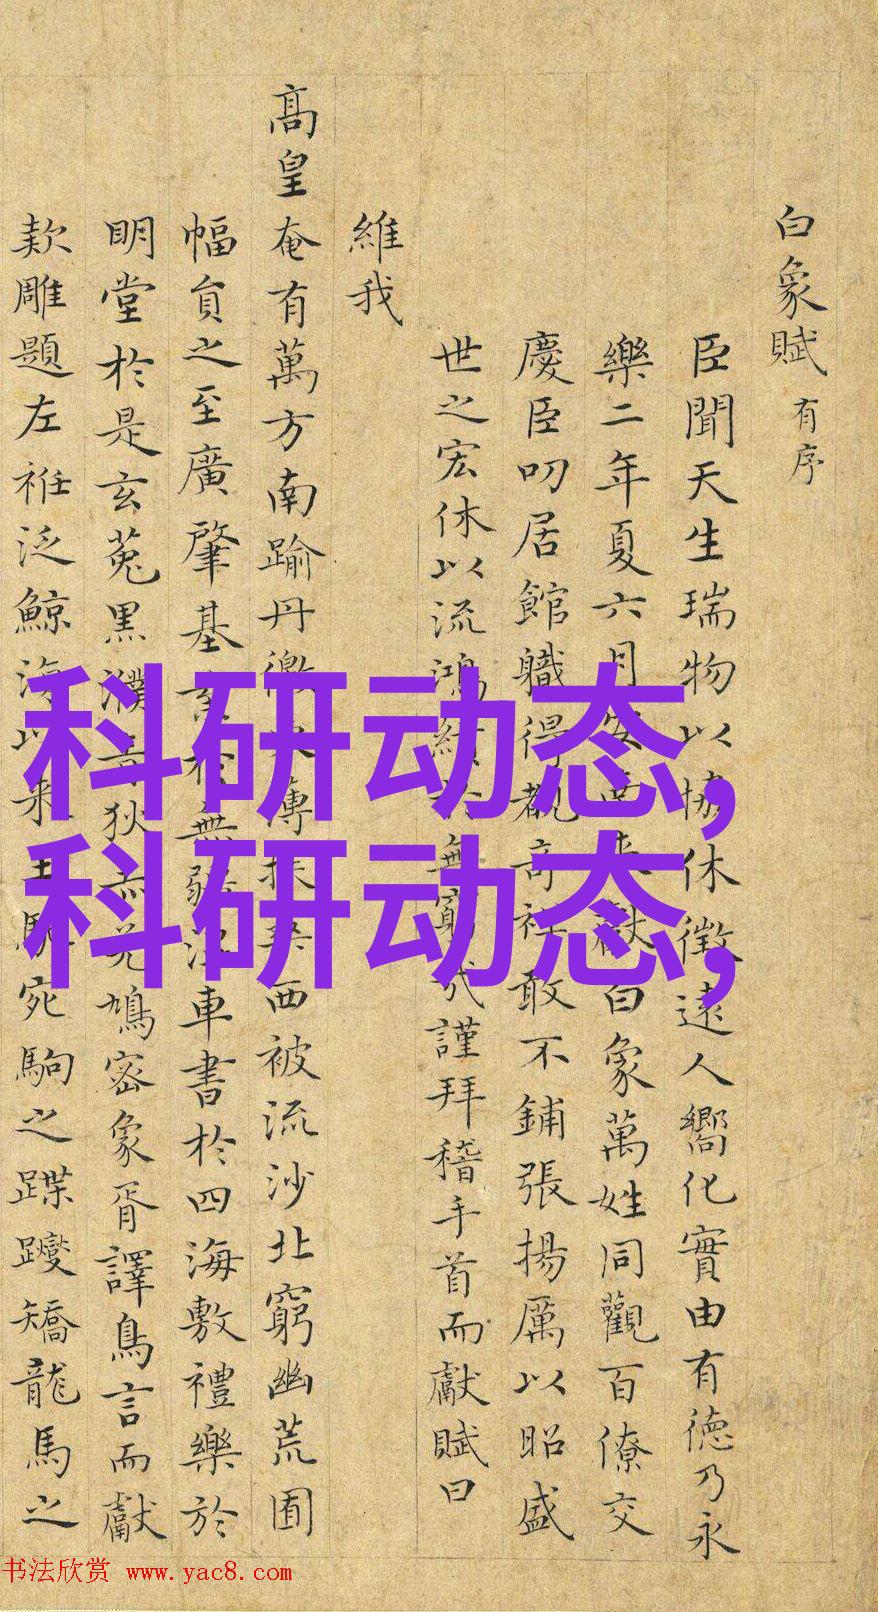 白象賦 有序
臣聞天生瑞物以協休徵遠人嚮化實由有德乃永
樂二年夏六月安南來獻白象萬姓同觀百僚交
慶臣叨居館職得覩奇祥敢不鋪張揚厲以昭盛
世之宏休以流鴻績於無窮哉謹拜稽手首而獻賦曰
維我
高皇奄有萬方南踰丹徼東薄扶桑西被流沙北窮幽荒圉
幅員之至廣肇基於無疆混車書於四海敷禮樂於
明堂於是玄菟黑濮哥狄鳩密象胥譯鳥言而獻
款雕題左衽泛鯨海以來王駒宛駒之蹀躞矯龍馬之
科研动态,
科研动态,
书法欣赏 www.yac8.com